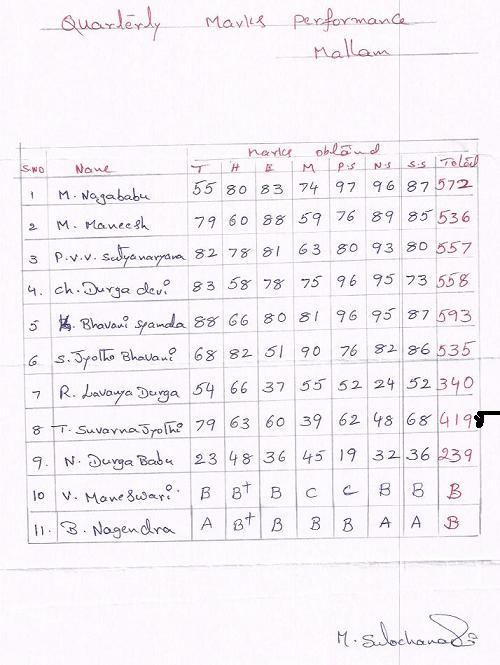 Quarterly Marks performance
Mallam
marks obtaind
S.NO Name T H E M P.S N.S S.S Total
1 M. Nagababu 55 80 83 74 97 96 87 572
2 M. Maneesh 79 60 88 59 76 89 85 536
3 P.V.V. Satyanaryana 82 78 81 63 80 93 80 557
4. Ch. Durga devi 83 58 78 75 96 95 73 558
5 Bhavani syamala 88 66 80 81 96 95 87 593
6 S. Jyothi Bhavani 68 82 51 90 76 82 86 535
7 R. Lavanya Durga 54 66 37 55 52 24 52 340
8 T. Suvarna Jyothi 79 63 60 39 62 48 68 419
9. N. Durga Babu 23 48 36 45 19 32 36 239
10 V. Maneswari B B+ B C C B B B
11. B. Nagendra A B+ B B B A A B
M. Sulochana